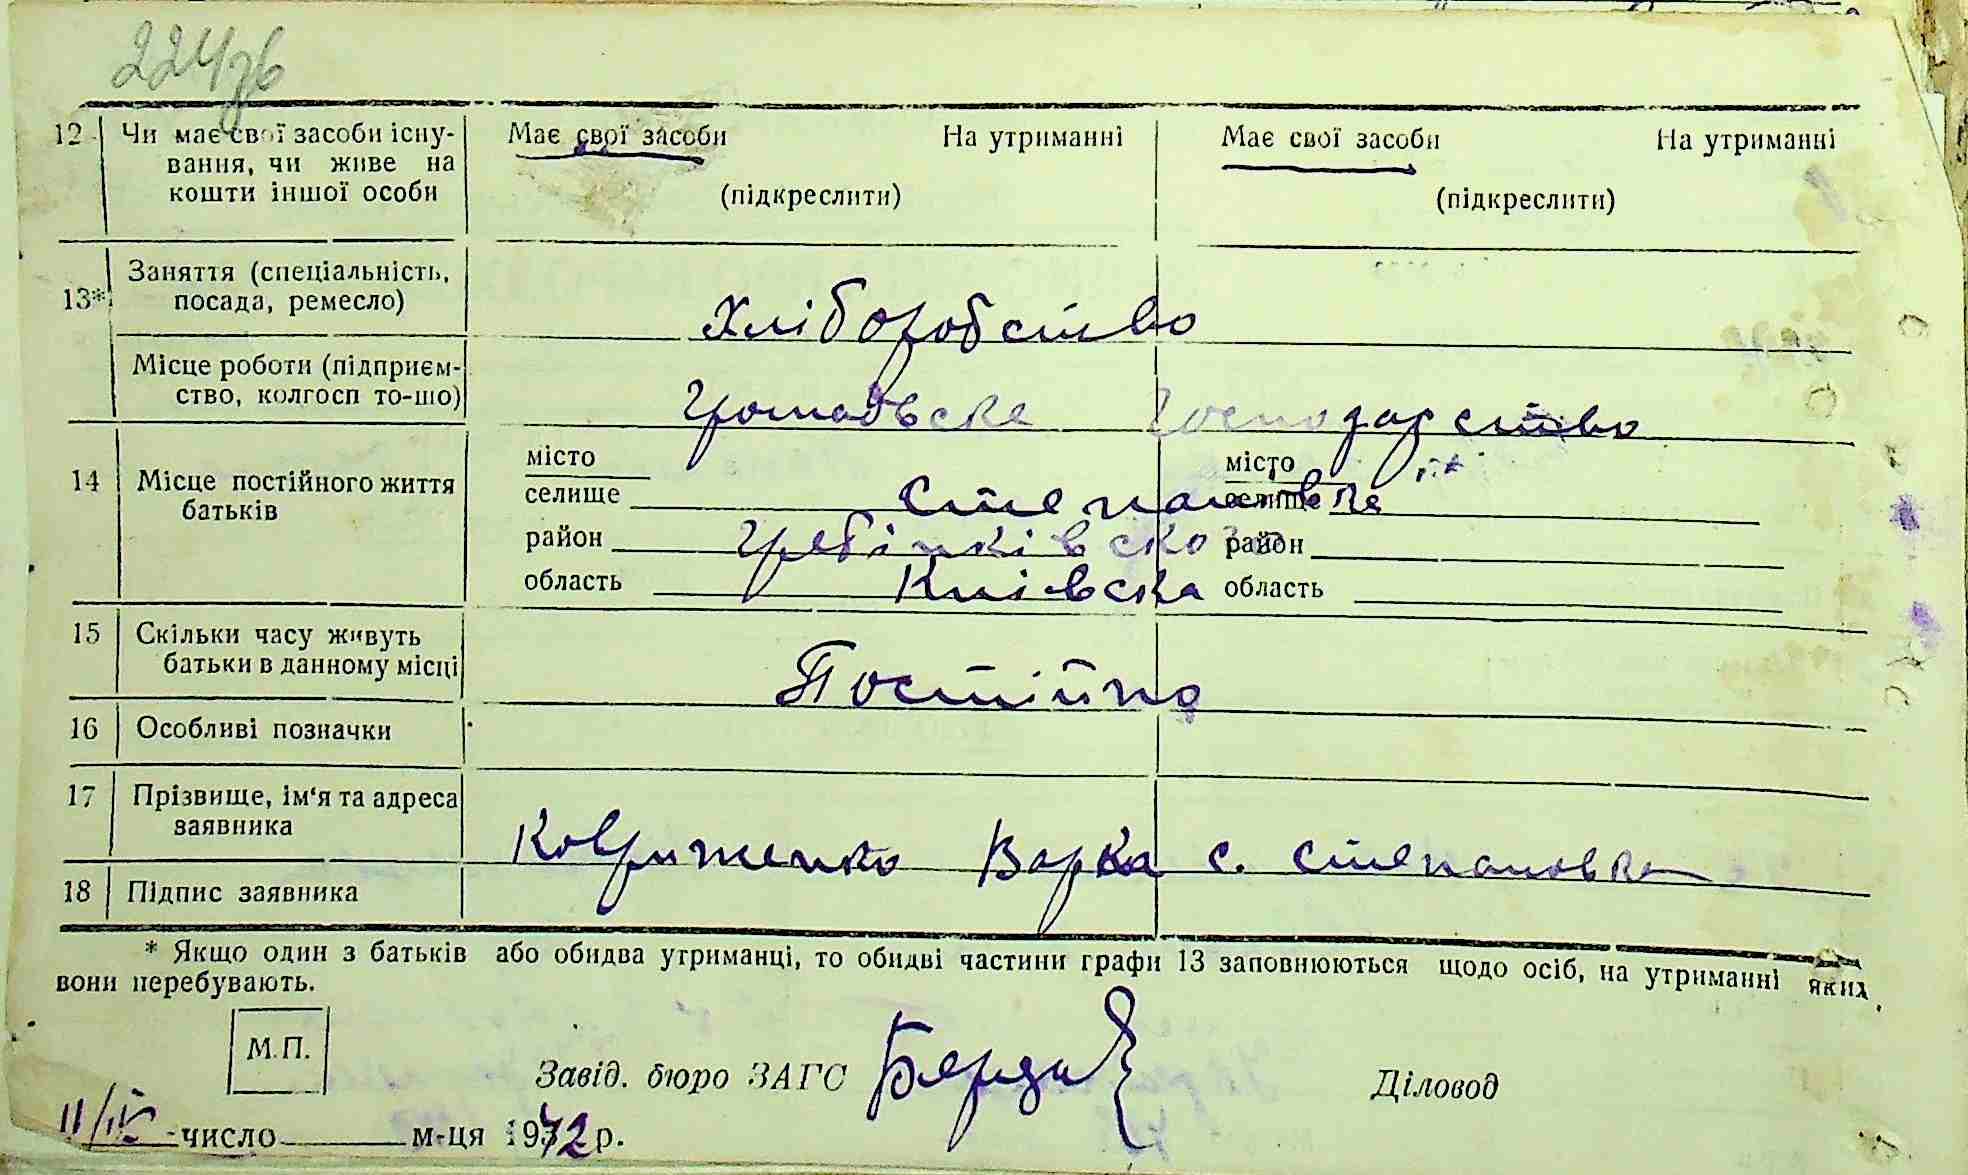 224зв
12 Чи має свої засоби існу- Має свої засоби На утриманні Має свої засоби На утриманні
вання, чи живе на
кошти іншої особи (підкреслити) (підкреслити)
13* Заняття (спеціальність,
посада, ремесло) Хліборобство
Місце роботи (підприєм-
ство, колгосп то-що) Громадьске господарство
14 Місце постійного життя
батьків
місто місто
селище Степановке селище
район Гребінківского район
область Київска область
15 Скільки часу живуть
батьки в данному місці Постійно
16 Особливі позначки
17 Прізвище, ім'я та адреса
заявника Ковриженко Варка с. Степановка
18 Підпис заявника
* Якщо один з батьків або обидва утриманці, то обидві частини графи 13 заповнюються щодо осіб, на утриманні яких
вони перебувають.
М.П.
Завід. бюро ЗАГС Діловод
11/IV число м-ця 1942 р.